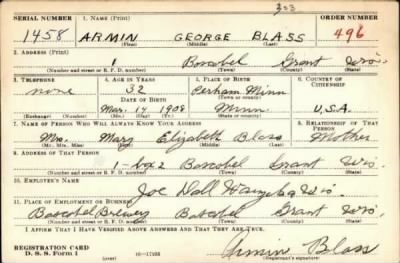 303
SERIAL NUMBER 1. NAME (Print) ORDER NUMBER
1458 ARMIN GEORGE BLASS 496
(First) (Middle) (Last)
2. ADDRESS (Print)
1 Boscobel Grant Wis.
(Number and street or R. F. D. number) (Town) (County) (State)
3. TELEPHONE 4. AGE IN YEARS 5. PLACE OF BIRTH 6. COUNTRY OF CITIZENSHIP
none 32 Perham Minn
DATE OF BIRTH (Town or county)
Mar. 14 1908 Minn. U.S.A.
(Exchange) (Number) (Mo.) (Day) (Yr.) (State or country)
7. NAME OF PERSON WHO WILL ALWAYS KNOW YOUR ADDRESS 8. RELATIONSHIP OF THAT PERSON
Mrs. Mary Elizabeth Blass Mother
(Mr., Mrs., Miss) (First) (Middle) (Last)
9. ADDRESS OF THAT PERSON
1 - box 2 Boscobel Grant Wis.
(Number and street or R. F. D. number) (Town) (County) (State)
10. EMPLOYER'S NAME
Joe Wis.
11. PLACE OF EMPLOYMENT OR BUSINESS
Boscobel Brewery Boscobel Grant Wis.
(Number and street or R. F. D. number) (Town) (County) (State)
I AFFIRM THAT I HAVE VERIFIED ABOVE ANSWERS AND THAT THEY ARE TRUE.
REGISTRATION CARD
D. S. S. Form 1 (over) 16-17105 Armin Blass
(Registrant's signature)